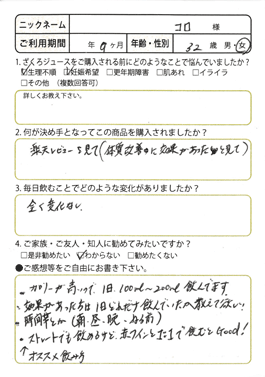 ニックネーム コロ 様
ご利用期間 年 9ヶ月 年齢・性別 32歳 男・女
1.ざくろジュースをご購入される前にどのようなことで悩んでいましたか？
☑生理不順 ☑妊娠希望 □更年期障害 □肌あれ □イライラ
□その他（複数回答可）
詳しくお教え下さい。
2.何が決め手となってこの商品を購入されましたか？
楽天レビューを見て(体質改善に効果があったと見て)
3.毎日飲むことでどのような変化がありましたか？
全く変化なし
4.ご家族・ご友人・知人に勧めてみたいですか？
□是非勧めたい ☑わからない □勧めたくない
●ご感想等をご自由にお書き下さい。
・カロリーが高いので、1日、100ml～200ml飲んでます
・効果があった方は1日どんだけ飲んでいたか教えて欲しい
・時間帯とか(朝、昼、晩、)
・ストレートでも飲めるけど、で1:1で飲むとGood!
↑オススメ飲み方